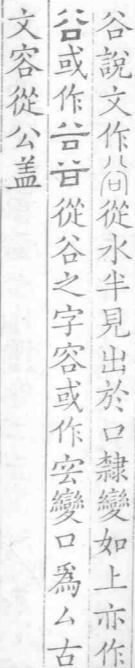 谷說文作從水半見出於口隸變如上亦作
或作從谷之字容或作變口爲厶古
文容從公盖